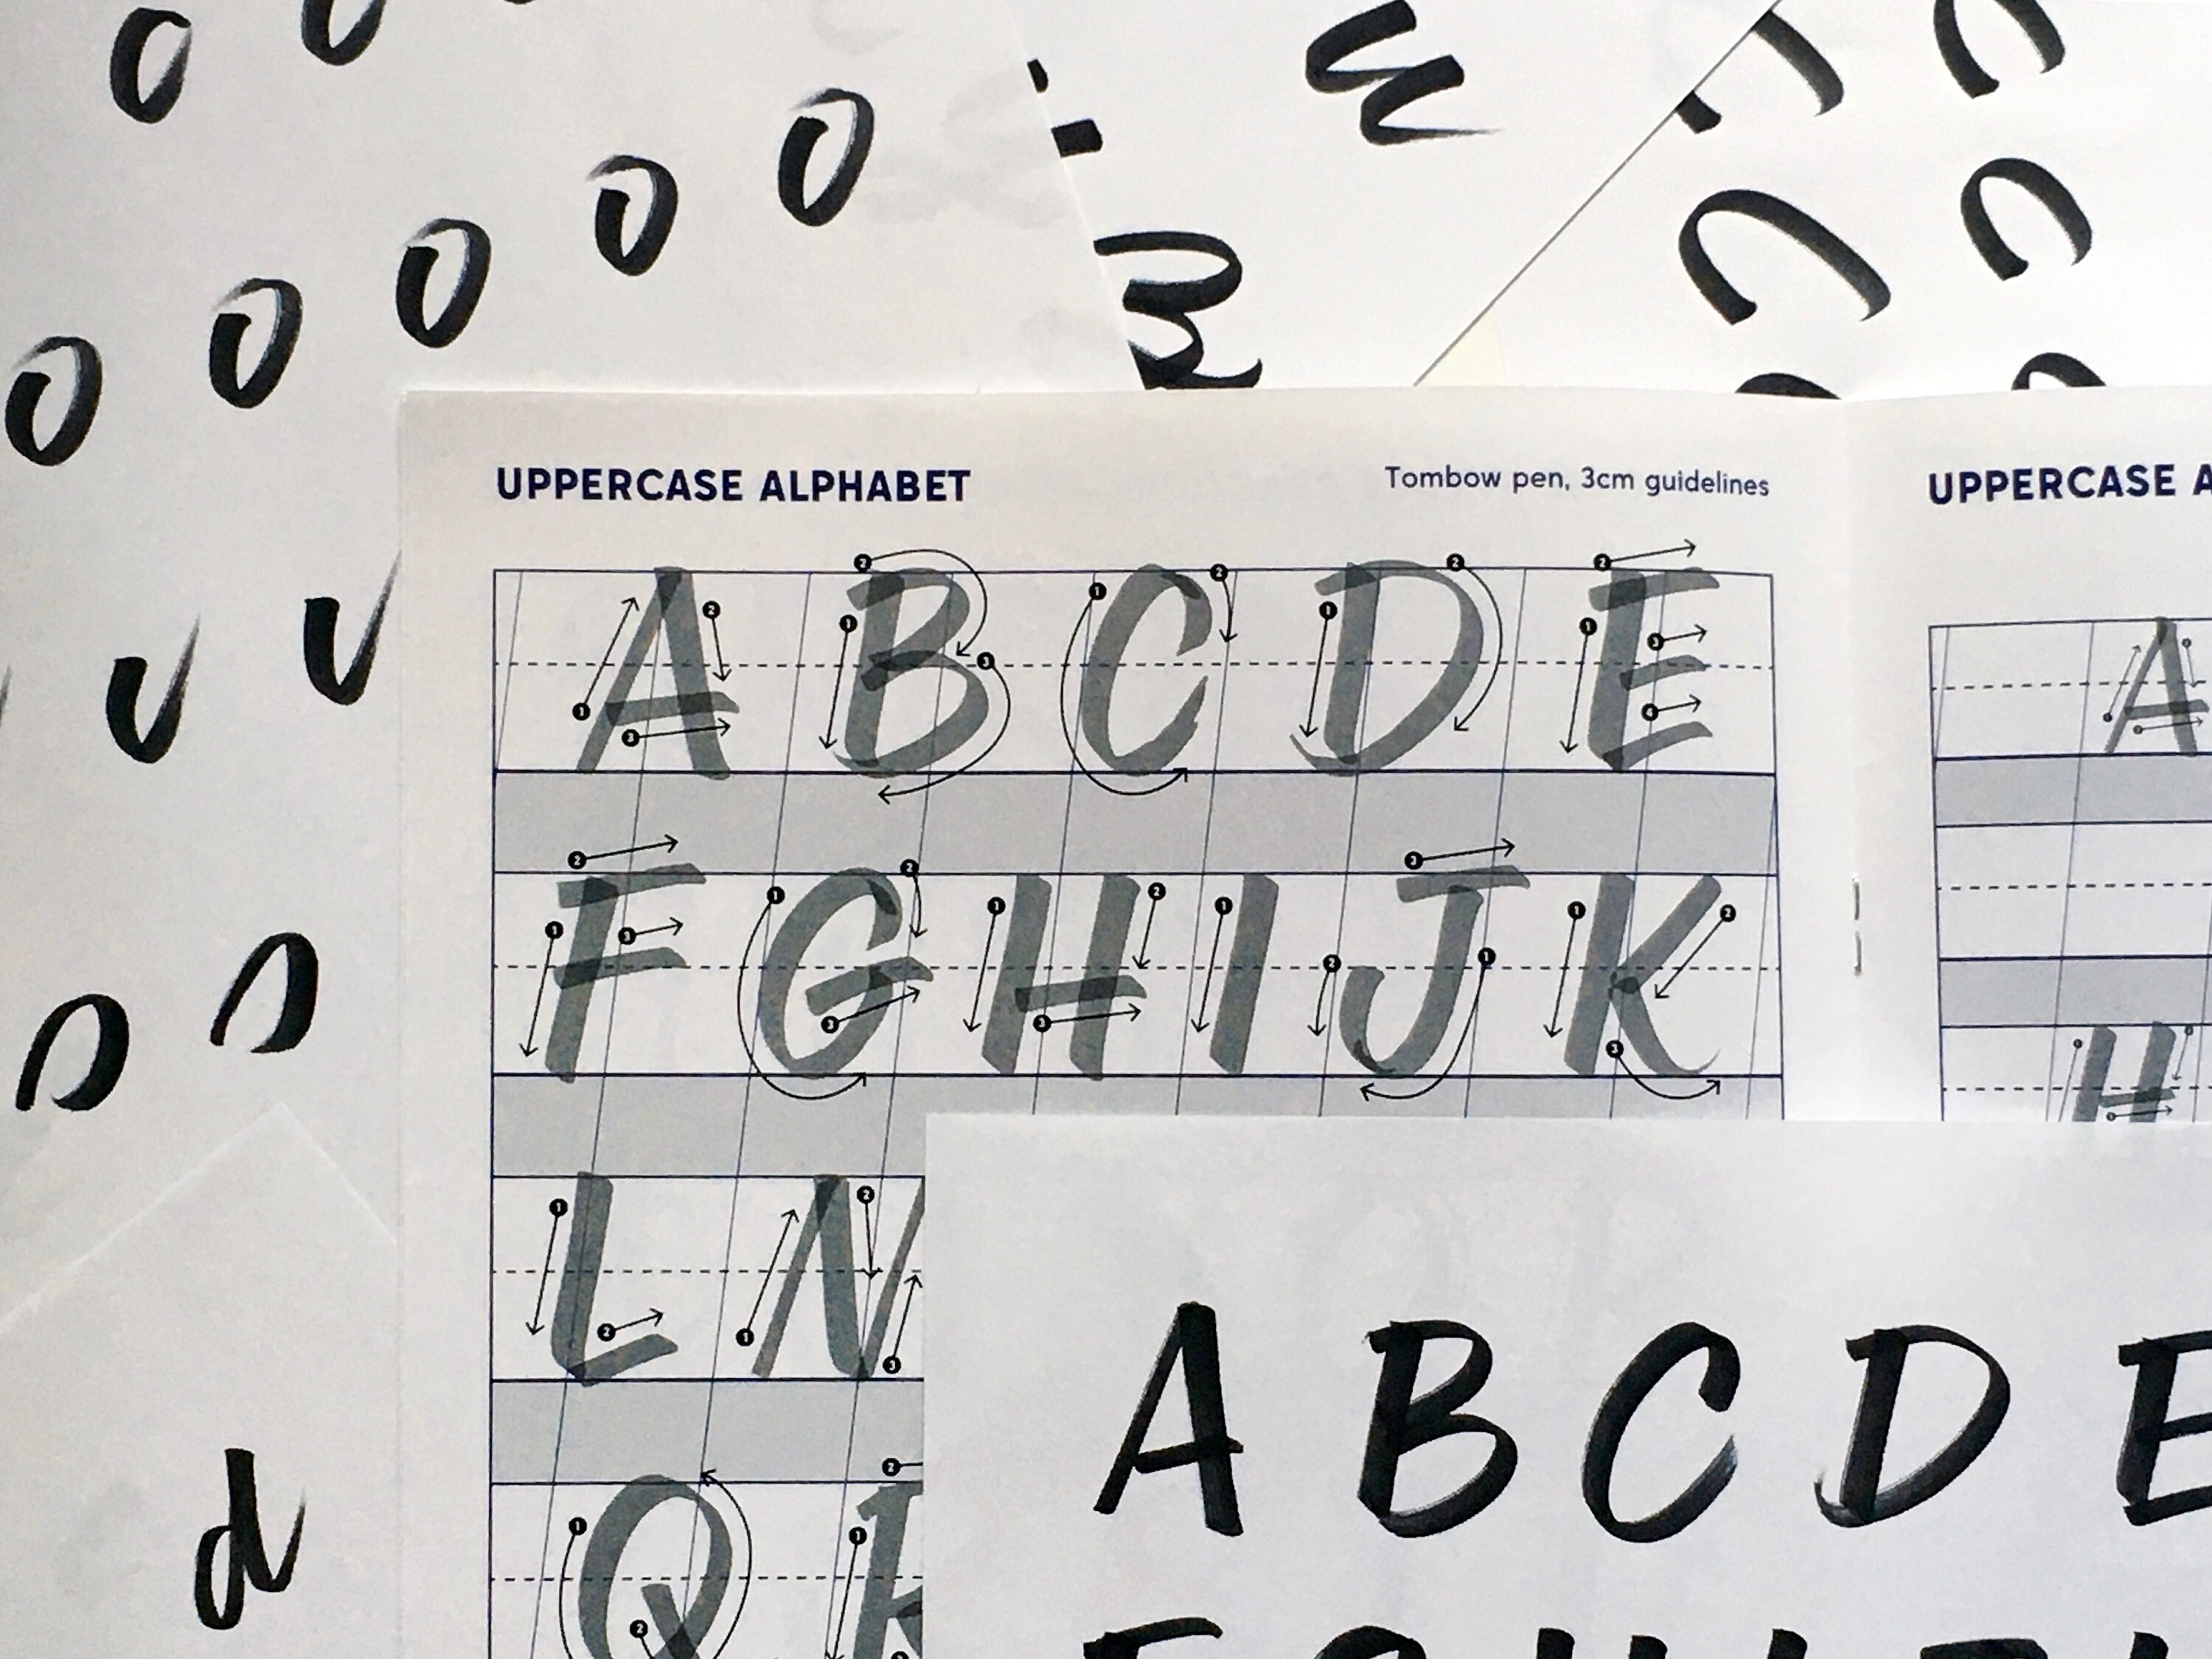 o
o o o o o
UPPERCASE ALPHABET
Tombow pen, 3cm guidelines
UPPERCASE A
A B C D E
A
F G H I J K
H
L N
Q
d
A B C D E